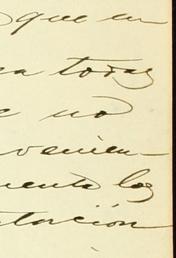 que en
a todas
e no
venien-
uenta los
tación